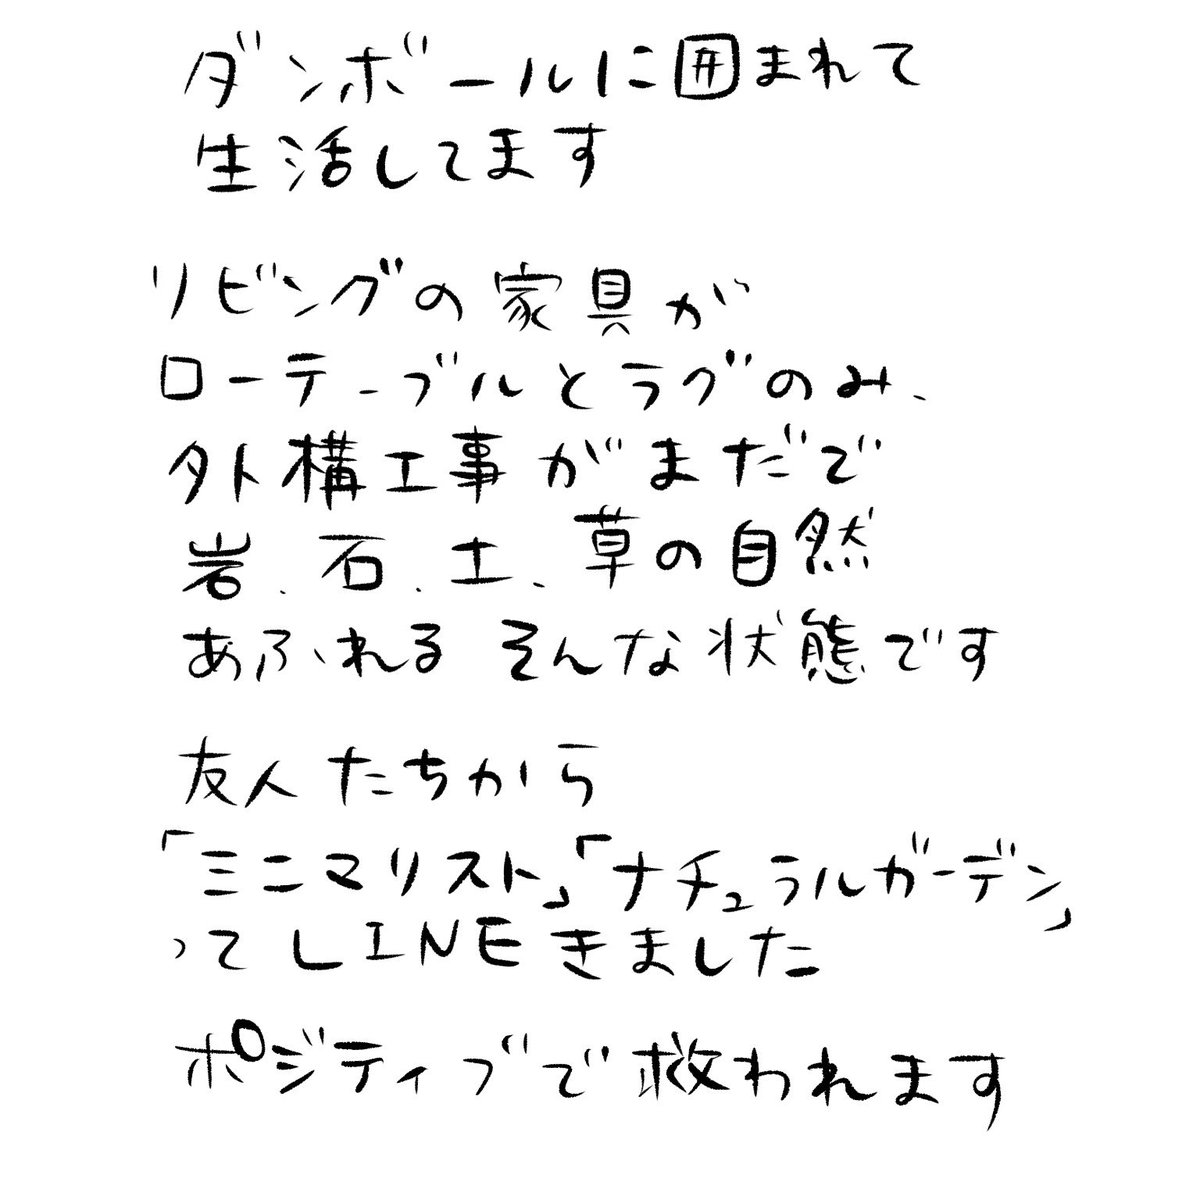 ダンボールに囲まれて
生活してます
リビングの家具が
ローテーブルとラグのみ、
外構工事がまだで
岩、石、土、草の自然
あふれるそんな状態です
友人たちから
「ミニマリスト」「ナチュラルガーデン」
ってLINEきました
ポジティブで救われます